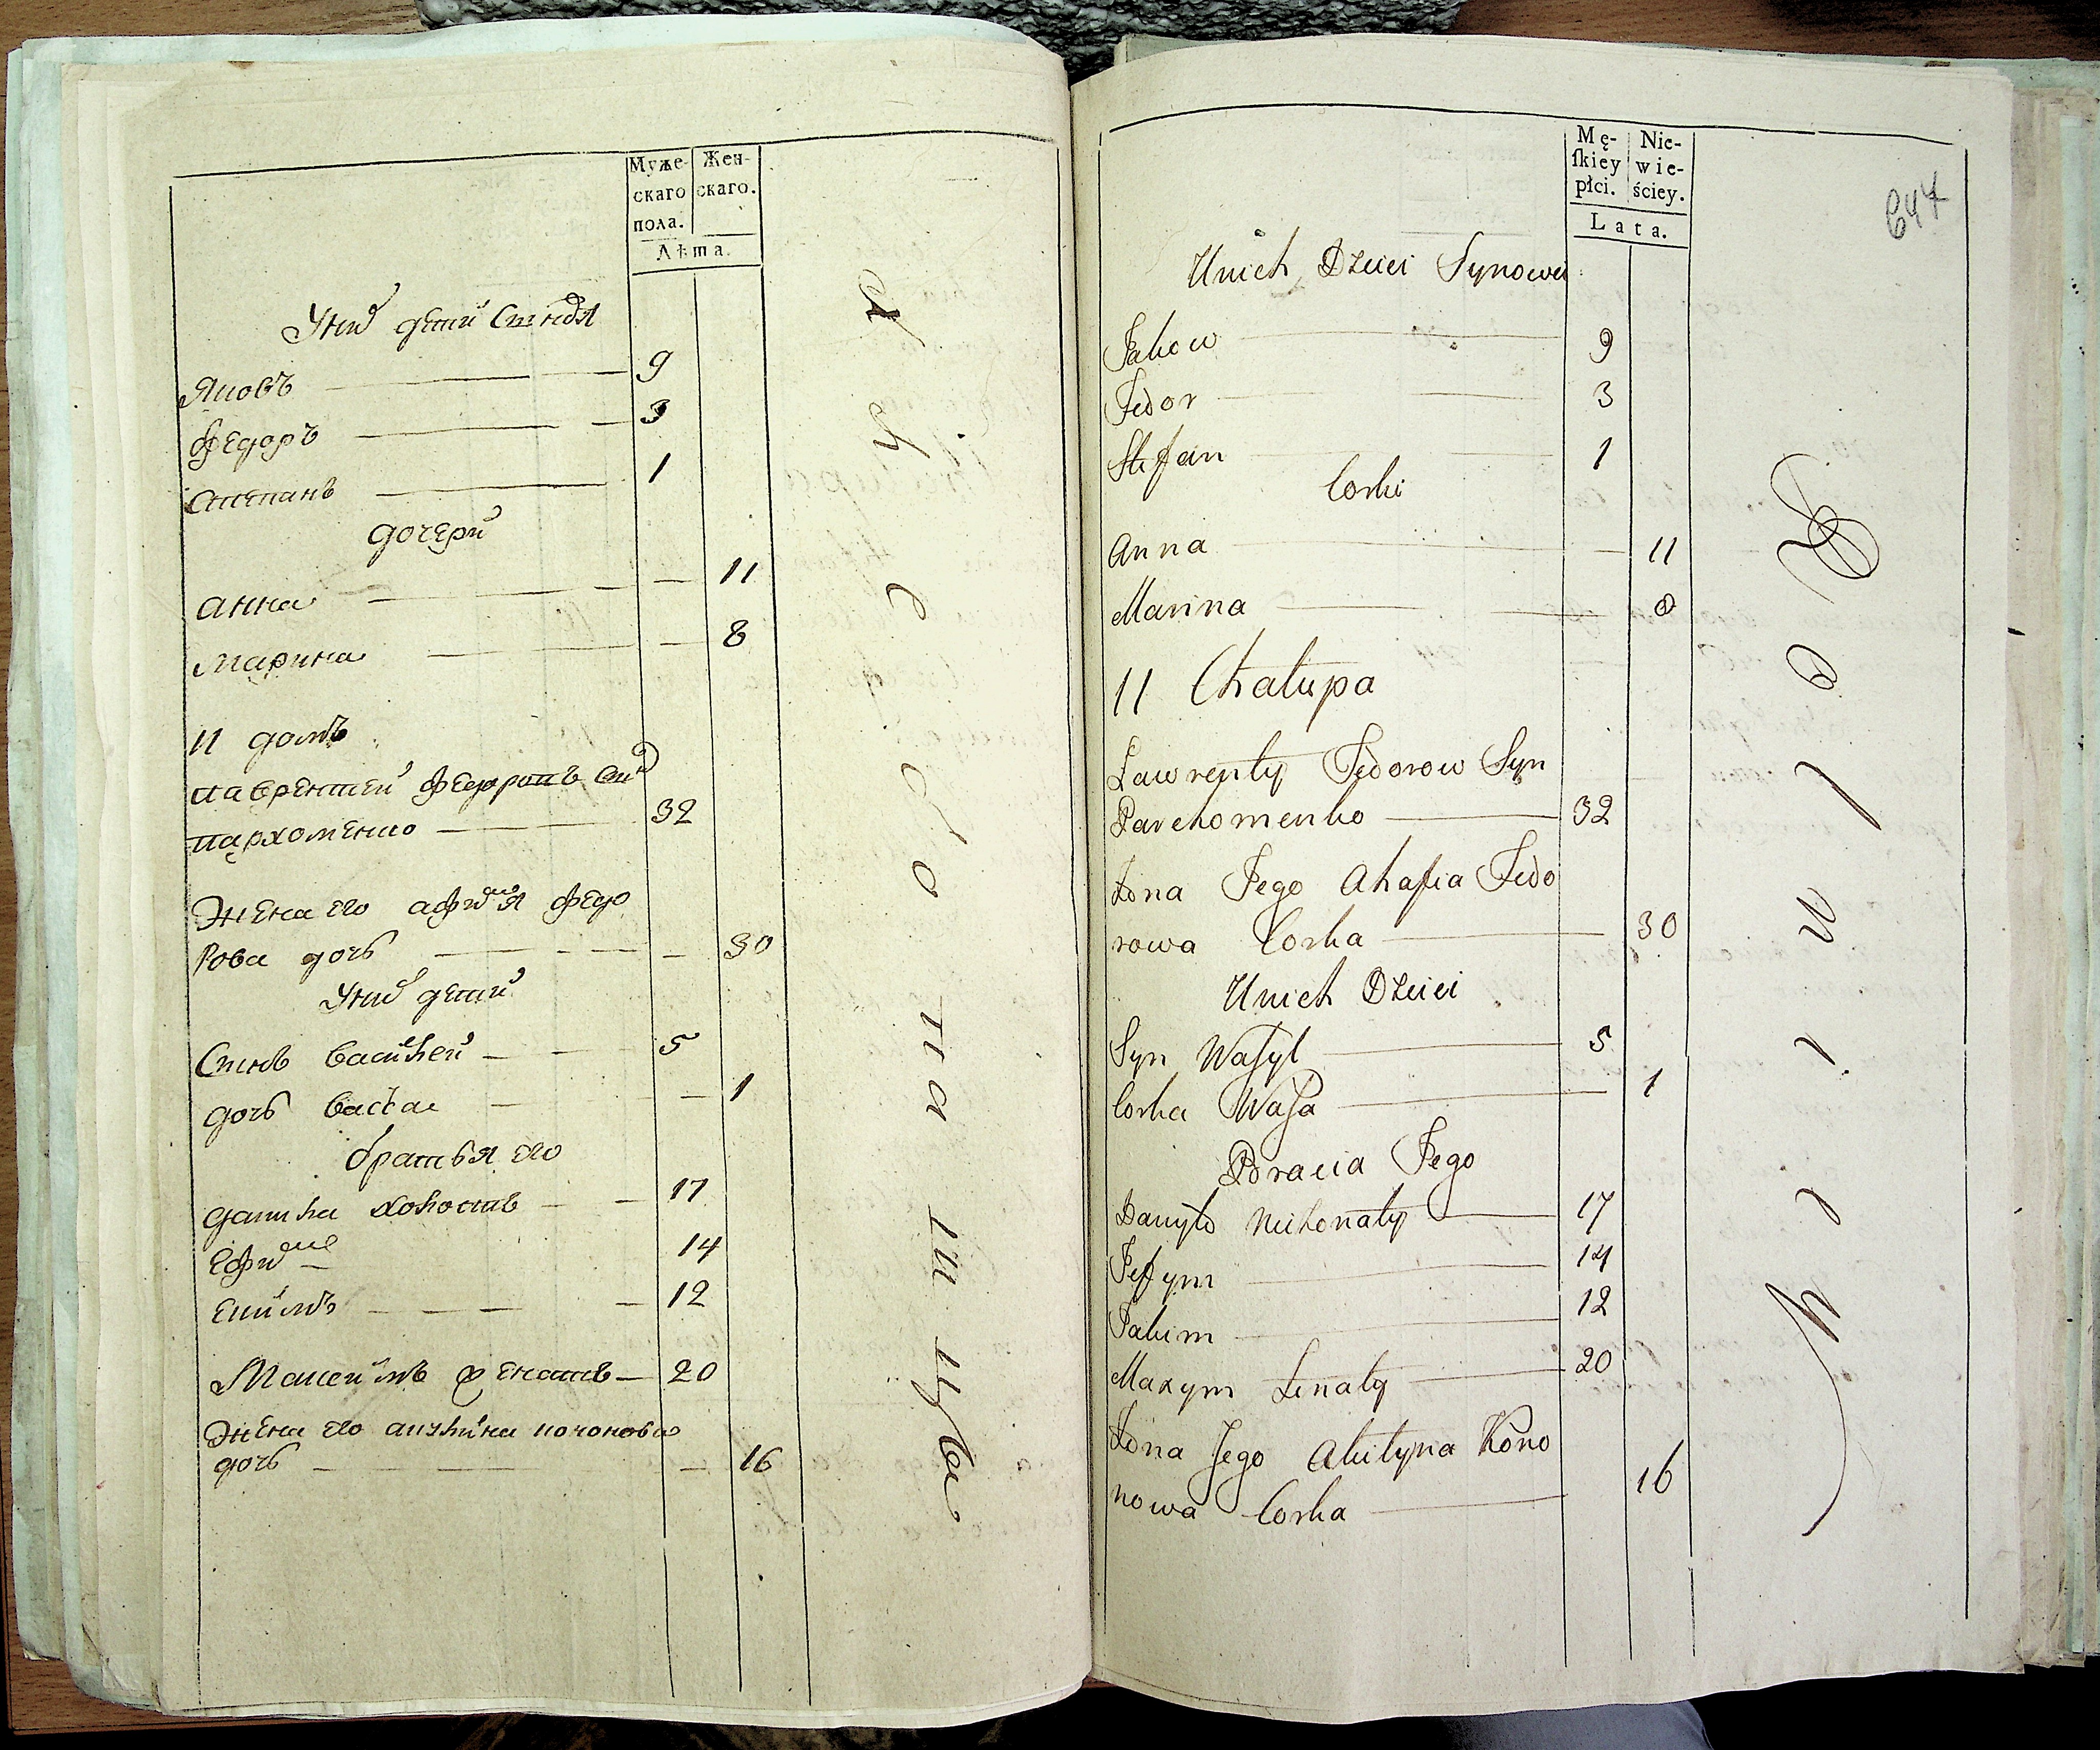 Муже-
скаго
пола.
Жен-
скаго.
Лѣта.
У них детй Сыновя
Яковъ 9
Федоръ 3
Степанъ 1
дочери
Анна 11
Марина 8
11 домъ
Лаврентей Федоровъ Сын
Пархоменко 32
Жена его Федо
рова дочь 30
У них детй
Сынъ Василей 5
дочь Васса 1
братья его
данила холостъ 17
Ефим 14
Екимъ 12
Максимъ женатъ 20
Жена его акулина кононова
дочь 16
Mę-
ſkiey
płci.
Nie-
wie-
ściey.
Lata.
647
Unich Dzieci Synowie
Jakow 9
Fedor 3
Stefan 1
Corki
Anna 11
Marina 8
11 Chałupa
Ławrenty Fedorow Syn
Parchomenko 32
Żona Jego Ahafia Fedo
rowa Corka 30
Unich Dzieci
Syn Wasyl 5
Corka Wasa 1
Bracia Jego
Daniło nieżonaty 17
Jefym 14
Jakim 12
Maxym żonaty 20
Żona Jego Akulyna Kono
nowa Corka 16